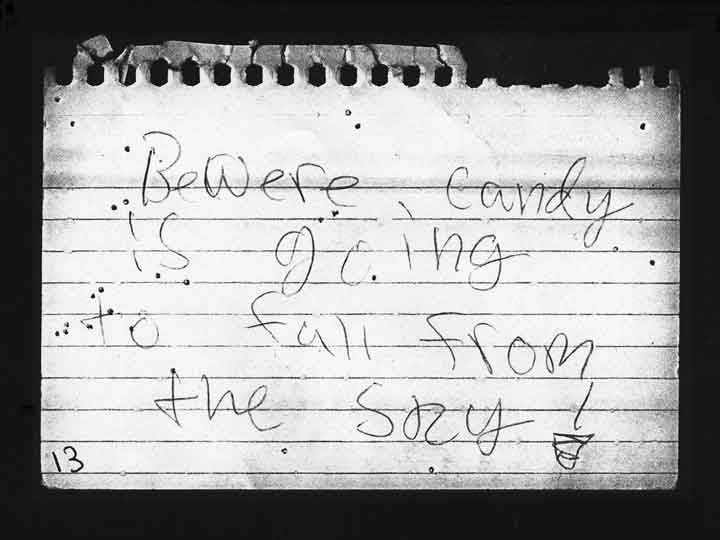 Bewere, candy
is going
to fall from
the sky!
13